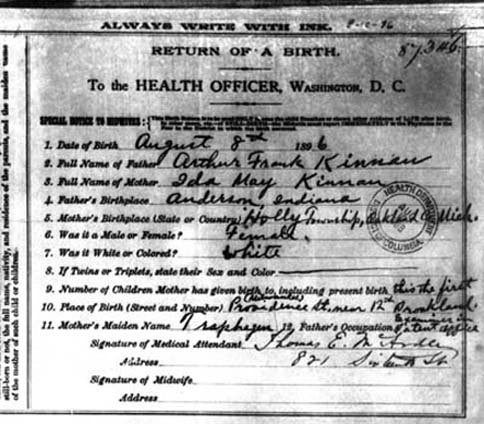 ALWAYS WRITE WITH INK.
RETURN OF A BIRTH.
87346
To the HEALTH OFFICER, WASHINGTON, D. C.
SPECIAL NOTICE TO MIDWIVES:
1. Date of Birth August 8th 1896
2. Full Name of Father Arthur Frank Kinnan
3. Full Name of Mother Ida May Kinnan
4. Father's Birthplace Anderson, Indiana
5. Mother's Birthplace (State or Country) Holly Township, Oakland Co Mich.
6. Was it a Male or Female? Female
7. Was it White or Colored? White
8. If Twins or Triplets, state their Sex and Color
9. Number of Children Mother has given birth to, including present birth this the first
10. Place of Birth (Street and Number) Providence St. near 12th Brookland
11. Mother's Maiden Name Traphagen 12. Father's Occupation Examiner in Patent office
Signature of Medical Attendant Thomas E.
Address 821 Sixteenth St
Signature of Midwife
Address
HEALTH DEPARTMENT
DISTRICT OF COLUMBIA
still-born or not, the full name, nativity, and residence of the parents, and the maiden name
of the mother of such child or children.